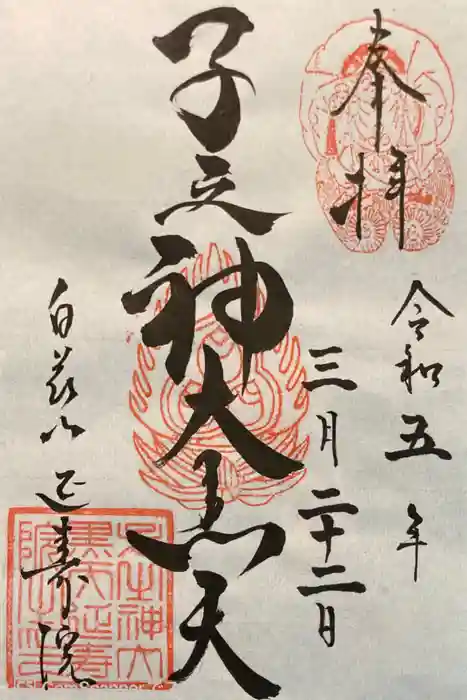 奉拝
令和五年
三月二十二日
子之神大黒天
白花山延寿院